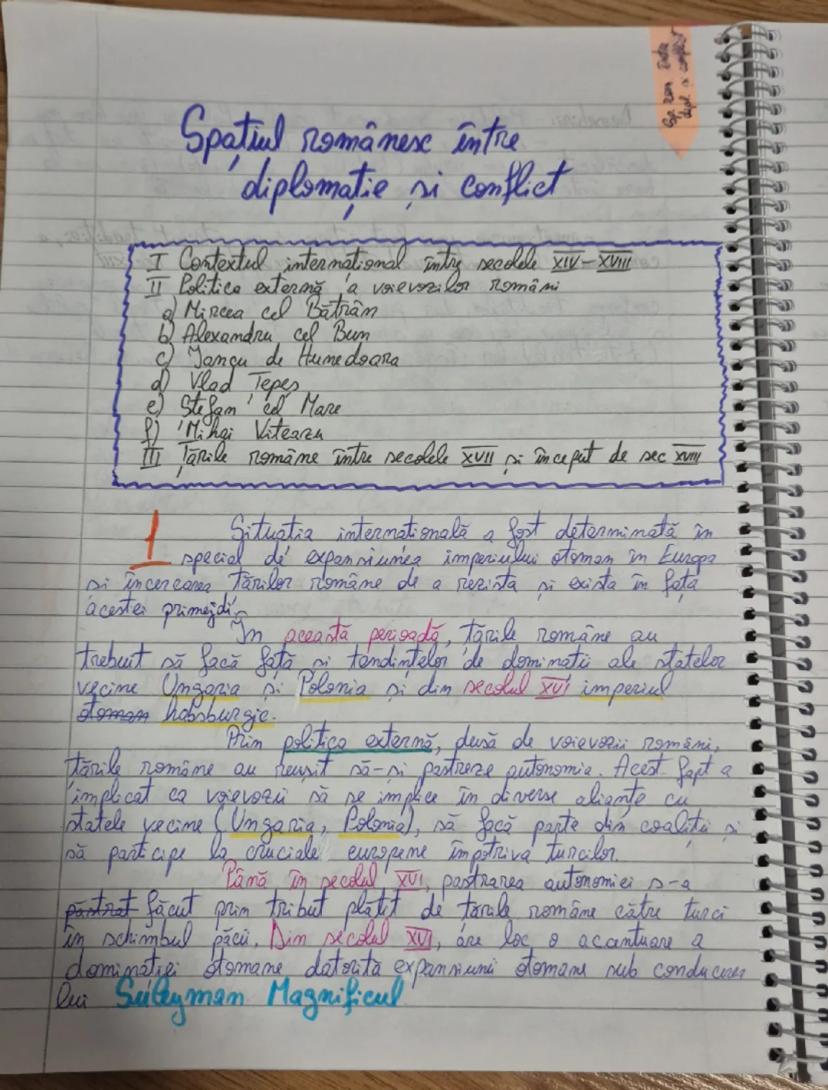 Sp. rom. între
dipl. si conflict
Spațiul românesc între
diplomație si conflict
I Contextul international între secolele XIV-XVIII
II Politica externă a voievozilor români
a) Mircea cel Bătrân
b) Alexandru cel Bun
c) Iancu de Hunedoara
d) Vlad Țepeș
e) Ștefan cel Mare
f) Mihai Viteazu
III Țările române între secolele XVII și început de sec XVIII
1 Situatia internatională a fost determinată în
special de expansiunea imperiului otoman în Europa
si încercarea țărilor române de a rezista și exista în fața
acestei primejdii.
În această perioadă, țările române au
trebuit să facă față si tendințelor de dominatii ale statelor
vecine Ungaria și Polonia și din secolul XVI imperiul
otoman habsburgic.
Prin politica externă, dusă de voievozii români,
țările române au reusit să-si pastreze autonomia. Acest fapt a
implicat ca voievozii să se implice în diverse alianțe cu
statele vecine (Ungaria, Polonia), să facă parte din coaliții și
să participe la cruciale europene împotriva turcilor.
Până în secolul XVI, pastrarea autonomiei s-a
păstrat făcut prin tribut plătit de țările române către turci
în schimbul păcii. Din secolul XVI, are loc o acantuare a
dominației otomane datorita expansiunii otomane sub conducerea
lui Suleyman Magnificul